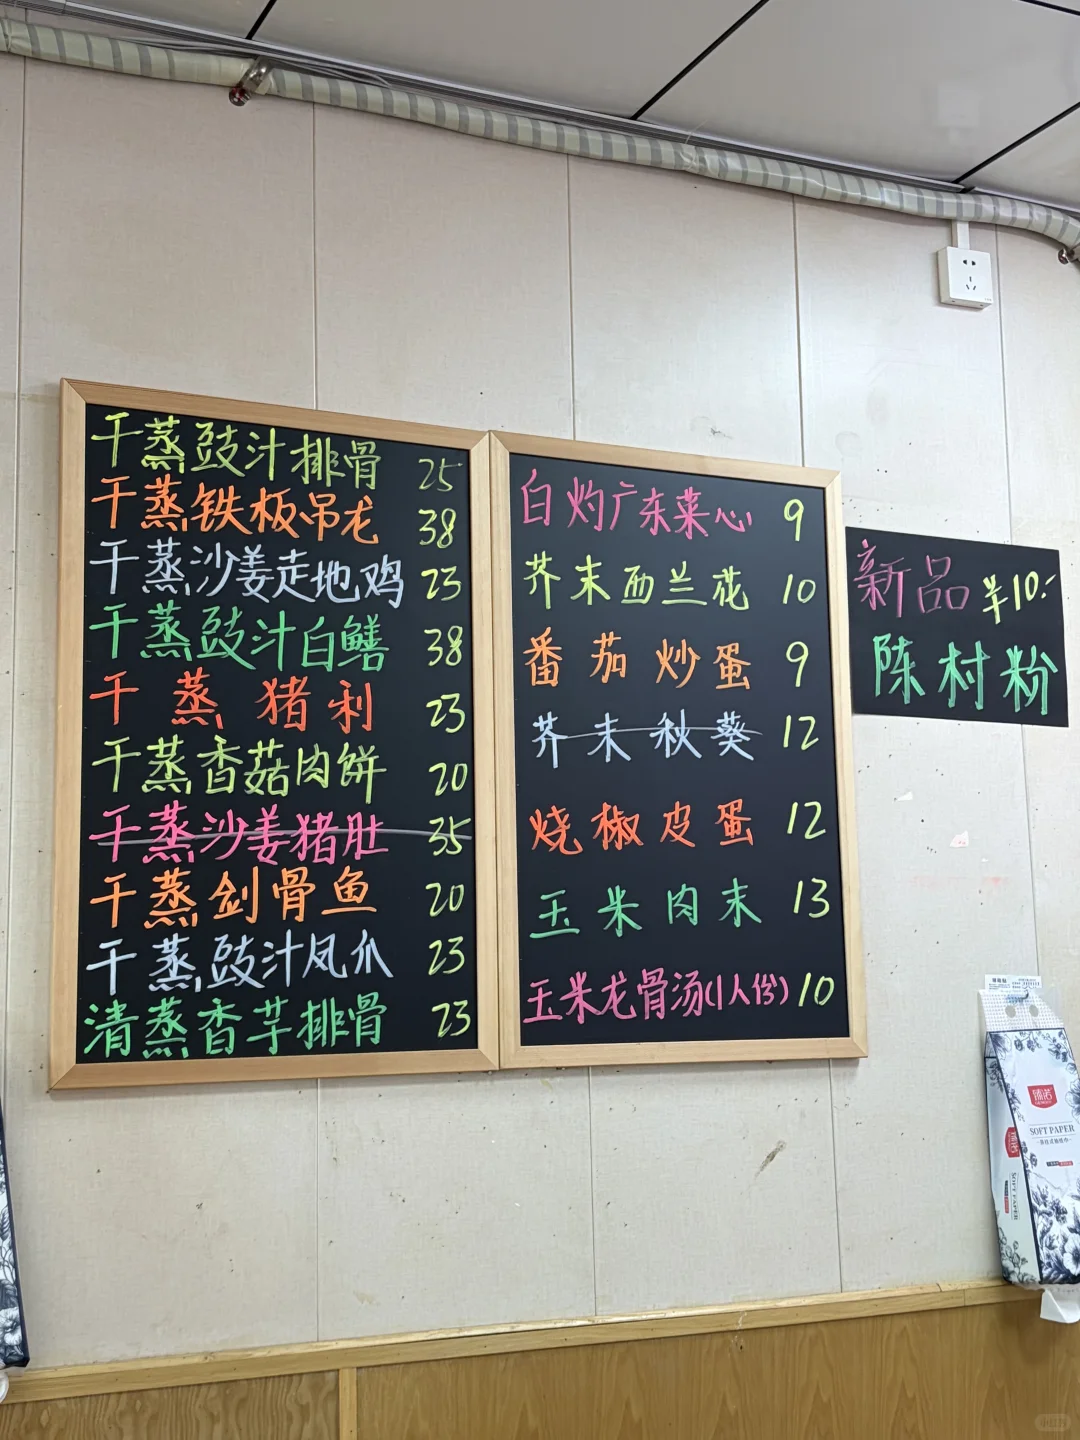 干蒸豉汁排骨 25
干蒸铁板吊龙 38
干蒸沙姜走地鸡 23
干蒸豉汁白鳝 38
干蒸猪利 23
干蒸香菇肉饼 20
干蒸沙姜猪肚 35
干蒸剑骨鱼 20
干蒸豉汁凤爪 23
清蒸香芋排骨 23
白灼广东菜心 9
芥末西兰花 10
番茄炒蛋 9
芥末秋葵 12
烧椒皮蛋 12
玉米肉末 13
玉米龙骨汤(1人份) 10
新品 羊10.-
陈村粉
臻诺
SOFT PAPER
SOFT PAPER
小红书